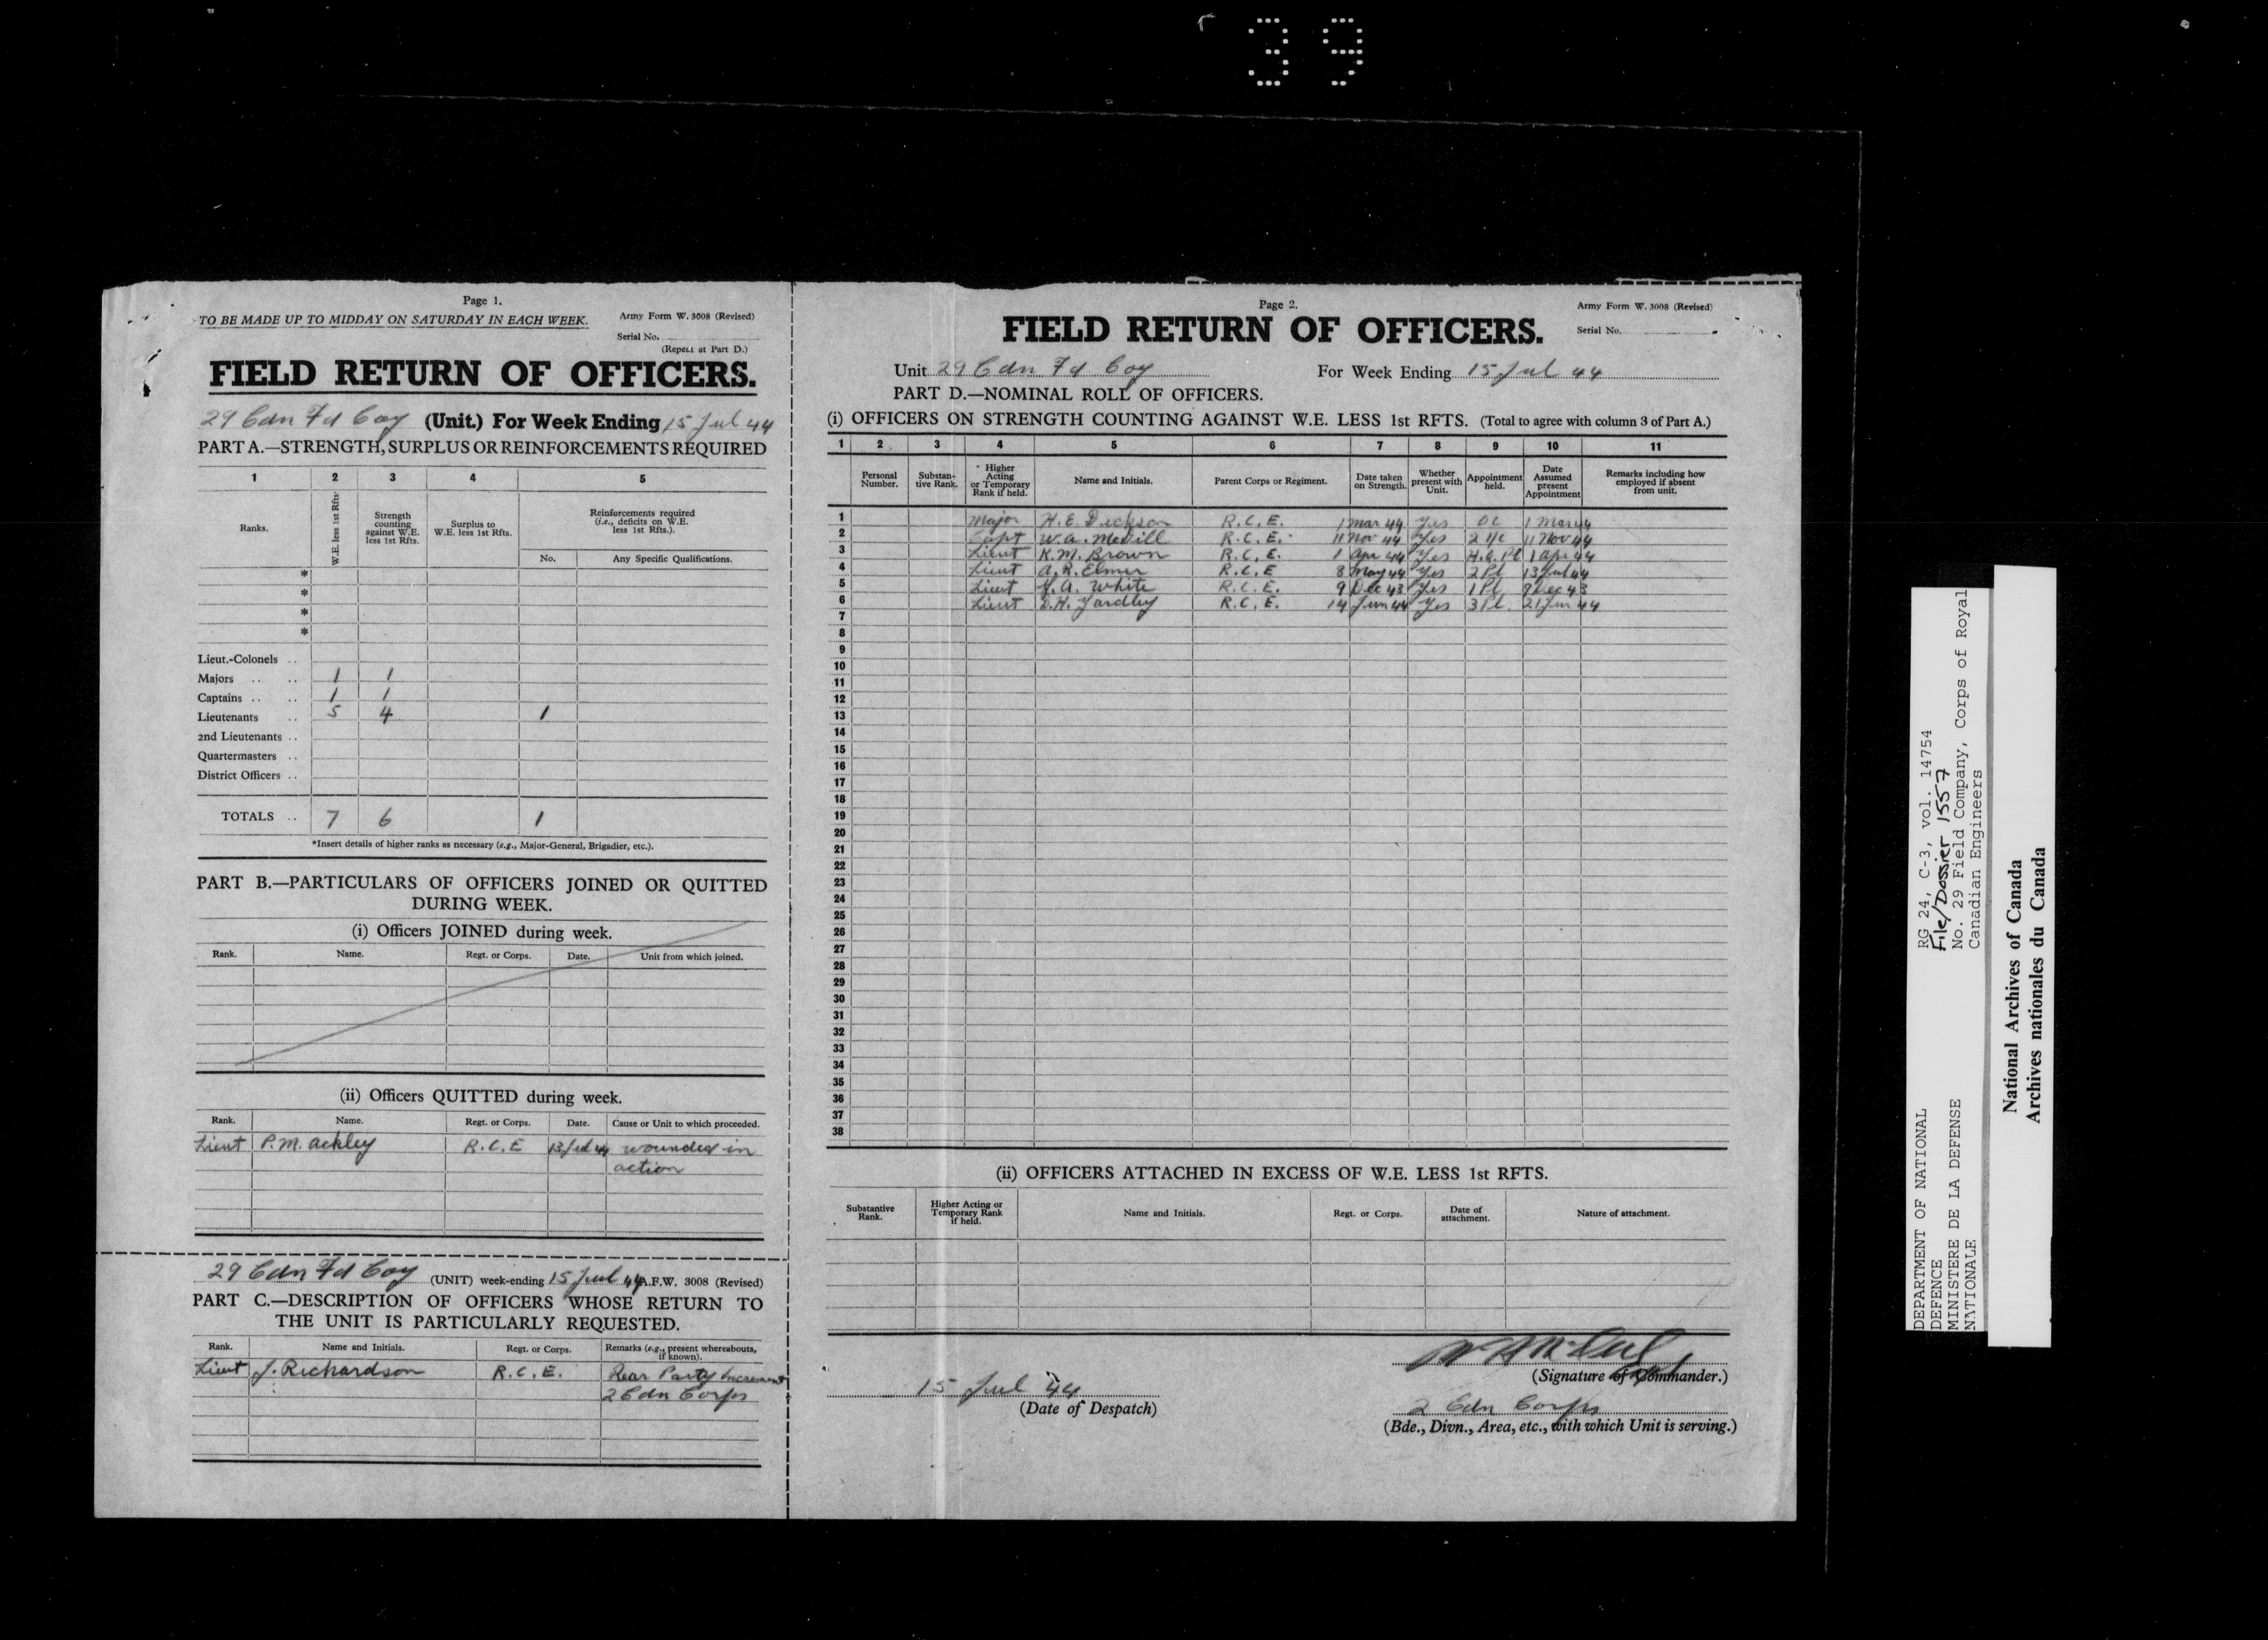 39
Page 1.
TO BE MADE UP TO MIDDAY ON SATURDAY IN EACH WEEK.
Army Form W. 3008 (Revised)
Serial No.
(Repeat at Part D.)
FIELD RETURN OF OFFICERS.
29 Cdn Fd Coy (Unit.) For Week Ending 15 Jul 44
PART A.—STRENGTH, SURPLUS OR REINFORCEMENTS REQUIRED
1 2 3 4 5
Ranks.
W.E. less 1st Rfts.
Strength counting against W.E. less 1st Rfts.
Surplus to W.E. less 1st Rfts.
Reinforcements required (i.e., deficits on W.E. less 1st Rfts.).
No. Any Specific Qualifications.
*
*
*
*
Lieut.-Colonels ..
Majors .. .. 1 1
Captains .. .. 1 1
Lieutenants .. 5 4 1
2nd Lieutenants ..
Quartermasters ..
District Officers ..
TOTALS .. 7 6 1
*Insert details of higher ranks as necessary (e.g., Major-General, Brigadier, etc.).
PART B.—PARTICULARS OF OFFICERS JOINED OR QUITTED
DURING WEEK.
(i) Officers JOINED during week.
Rank. Name. Regt. or Corps. Date. Unit from which joined.
(ii) Officers QUITTED during week.
Rank. Name. Regt. or Corps. Date. Cause or Unit to which proceeded.
Lieut P.M. Ackley R.C.E 13 Jul 44 wounded in
action
29 Cdn Fd Coy (UNIT) week-ending 15 Jul 44 A.F.W. 3008 (Revised)
PART C.—DESCRIPTION OF OFFICERS WHOSE RETURN TO
THE UNIT IS PARTICULARLY REQUESTED.
Rank. Name and Initials. Regt. or Corps. Remarks (e.g., present whereabouts, if known).
Lieut J. Richardson R.C.E. Rear Party Increment
2 Cdn Corps
Page 2.
Army Form W. 3008 (Revised)
FIELD RETURN OF OFFICERS.
Serial No.
Unit 29 Cdn Fd Coy For Week Ending 15 Jul 44
PART D.—NOMINAL ROLL OF OFFICERS.
(i) OFFICERS ON STRENGTH COUNTING AGAINST W.E. LESS 1st RFTS. (Total to agree with column 3 of Part A.)
1 2 3 4 5 6 7 8 9 10 11
Personal Number.
Substantive Rank.
Higher Acting or Temporary Rank if held.
Name and Initials.
Parent Corps or Regiment.
Date taken on Strength.
Whether present with Unit.
Appointment held.
Date Assumed present Appointment
Remarks including how employed if absent from unit.
1 Major H.E. Dickson R.C.E. 1 Mar 44 Yes OC 1 Mar 44
2 Capt W.A. R.C.E. 11 Nov 44 Yes 2 i/c 11 Nov 44
3 Lieut K.M. Brown R.C.E. 1 Apr 44 Yes H.Q. Pl 1 Apr 44
4 Lieut A.R. Elmer R.C.E 8 May 44 Yes 2 Pl 13 Jul 44
5 Lieut A. White R.C.E. 9 Dec 43 Yes 1 Pl 9 Dec 43
6 Lieut D.H. Yardley R.C.E. 14 Jun 44 Yes 3 Pl. 21 Jun 44
7
8
9
10
11
12
13
14
15
16
17
18
19
20
21
22
23
24
25
26
27
28
29
30
31
32
33
34
35
36
37
38
(ii) OFFICERS ATTACHED IN EXCESS OF W.E. LESS 1st RFTS.
Substantive Rank.
Higher Acting or Temporary Rank if held.
Name and Initials.
Regt. or Corps.
Date of attachment.
Nature of attachment.
(Signature of Commander.)
15 Jul 44
(Date of Despatch)
2 Cdn Corps
(Bde., Divn., Area, etc., with which Unit is serving.)
DEPARTMENT OF NATIONAL
DEFENCE
MINISTERE DE LA DEFENSE
NATIONALE
RG 24, C-3, vol. 14754
File/Dossier 1557
No. 29 Field Company, Corps of Royal
Canadian Engineers
National Archives of Canada
Archives nationales du Canada